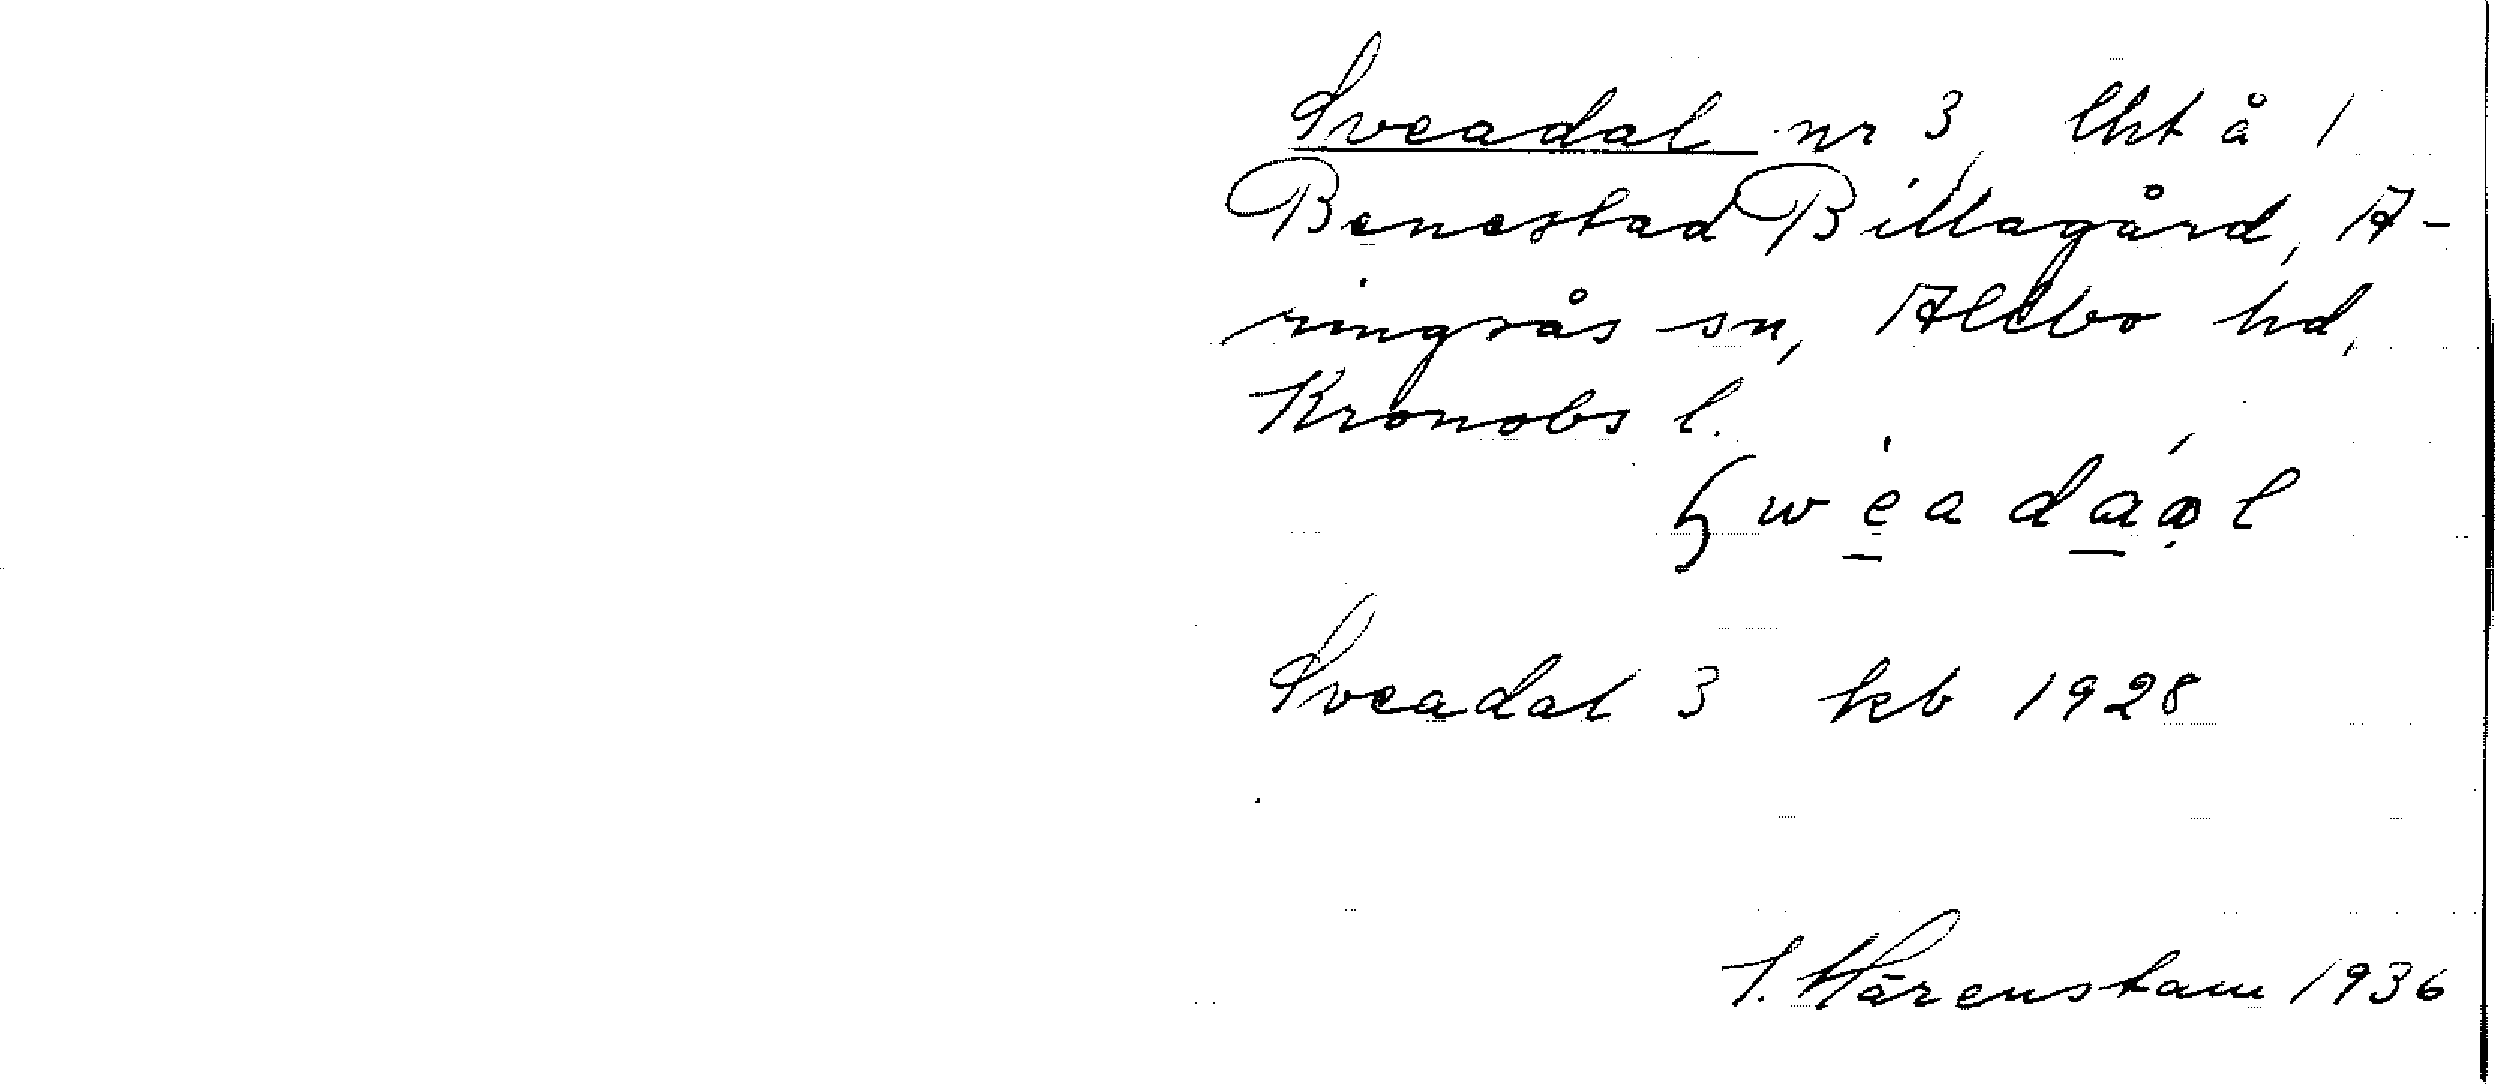 Sveadal nr 3, lht å 1
Benestad Billagård, A-
ringsås sn, Allbo hd,
Kronobs l.
Sveadal 3 kb 1928
I. Härenstam 1936